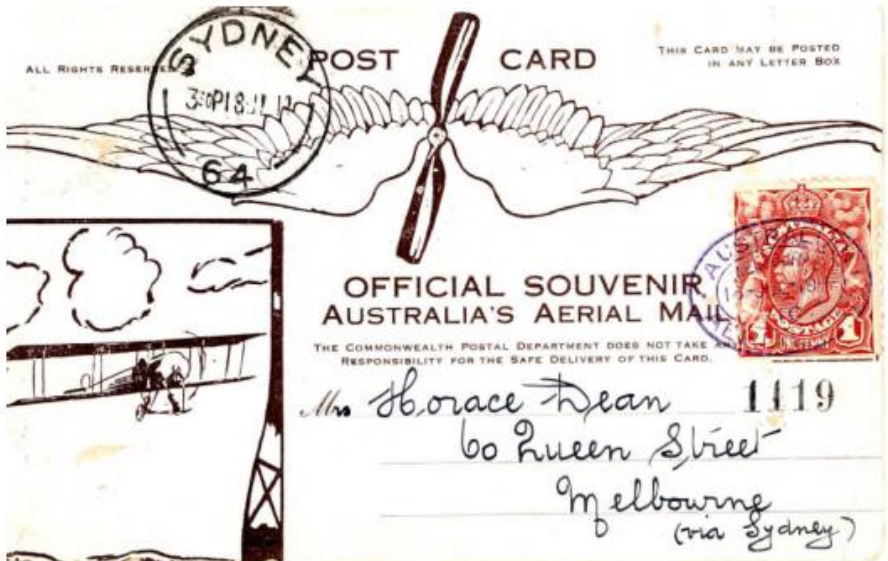 POST CARD
ALL RIGHTS RESERVED
THIS CARD MAY BE POSTED
IN ANY LETTER BOX
SYDNEY
64
OFFICIAL SOUVENIR
AUSTRALIA'S AERIAL MAIL
THE COMMONWEALTH POSTAL DEPARTMENT DOES NOT TAKE ANY
RESPONSIBILITY FOR THE SAFE DELIVERY OF THIS CARD.
POSTAGE
1 ONE PENNY 1
Mrs Horace Dean 1119
60 Queen Street
Melbourne
(via Sydney)